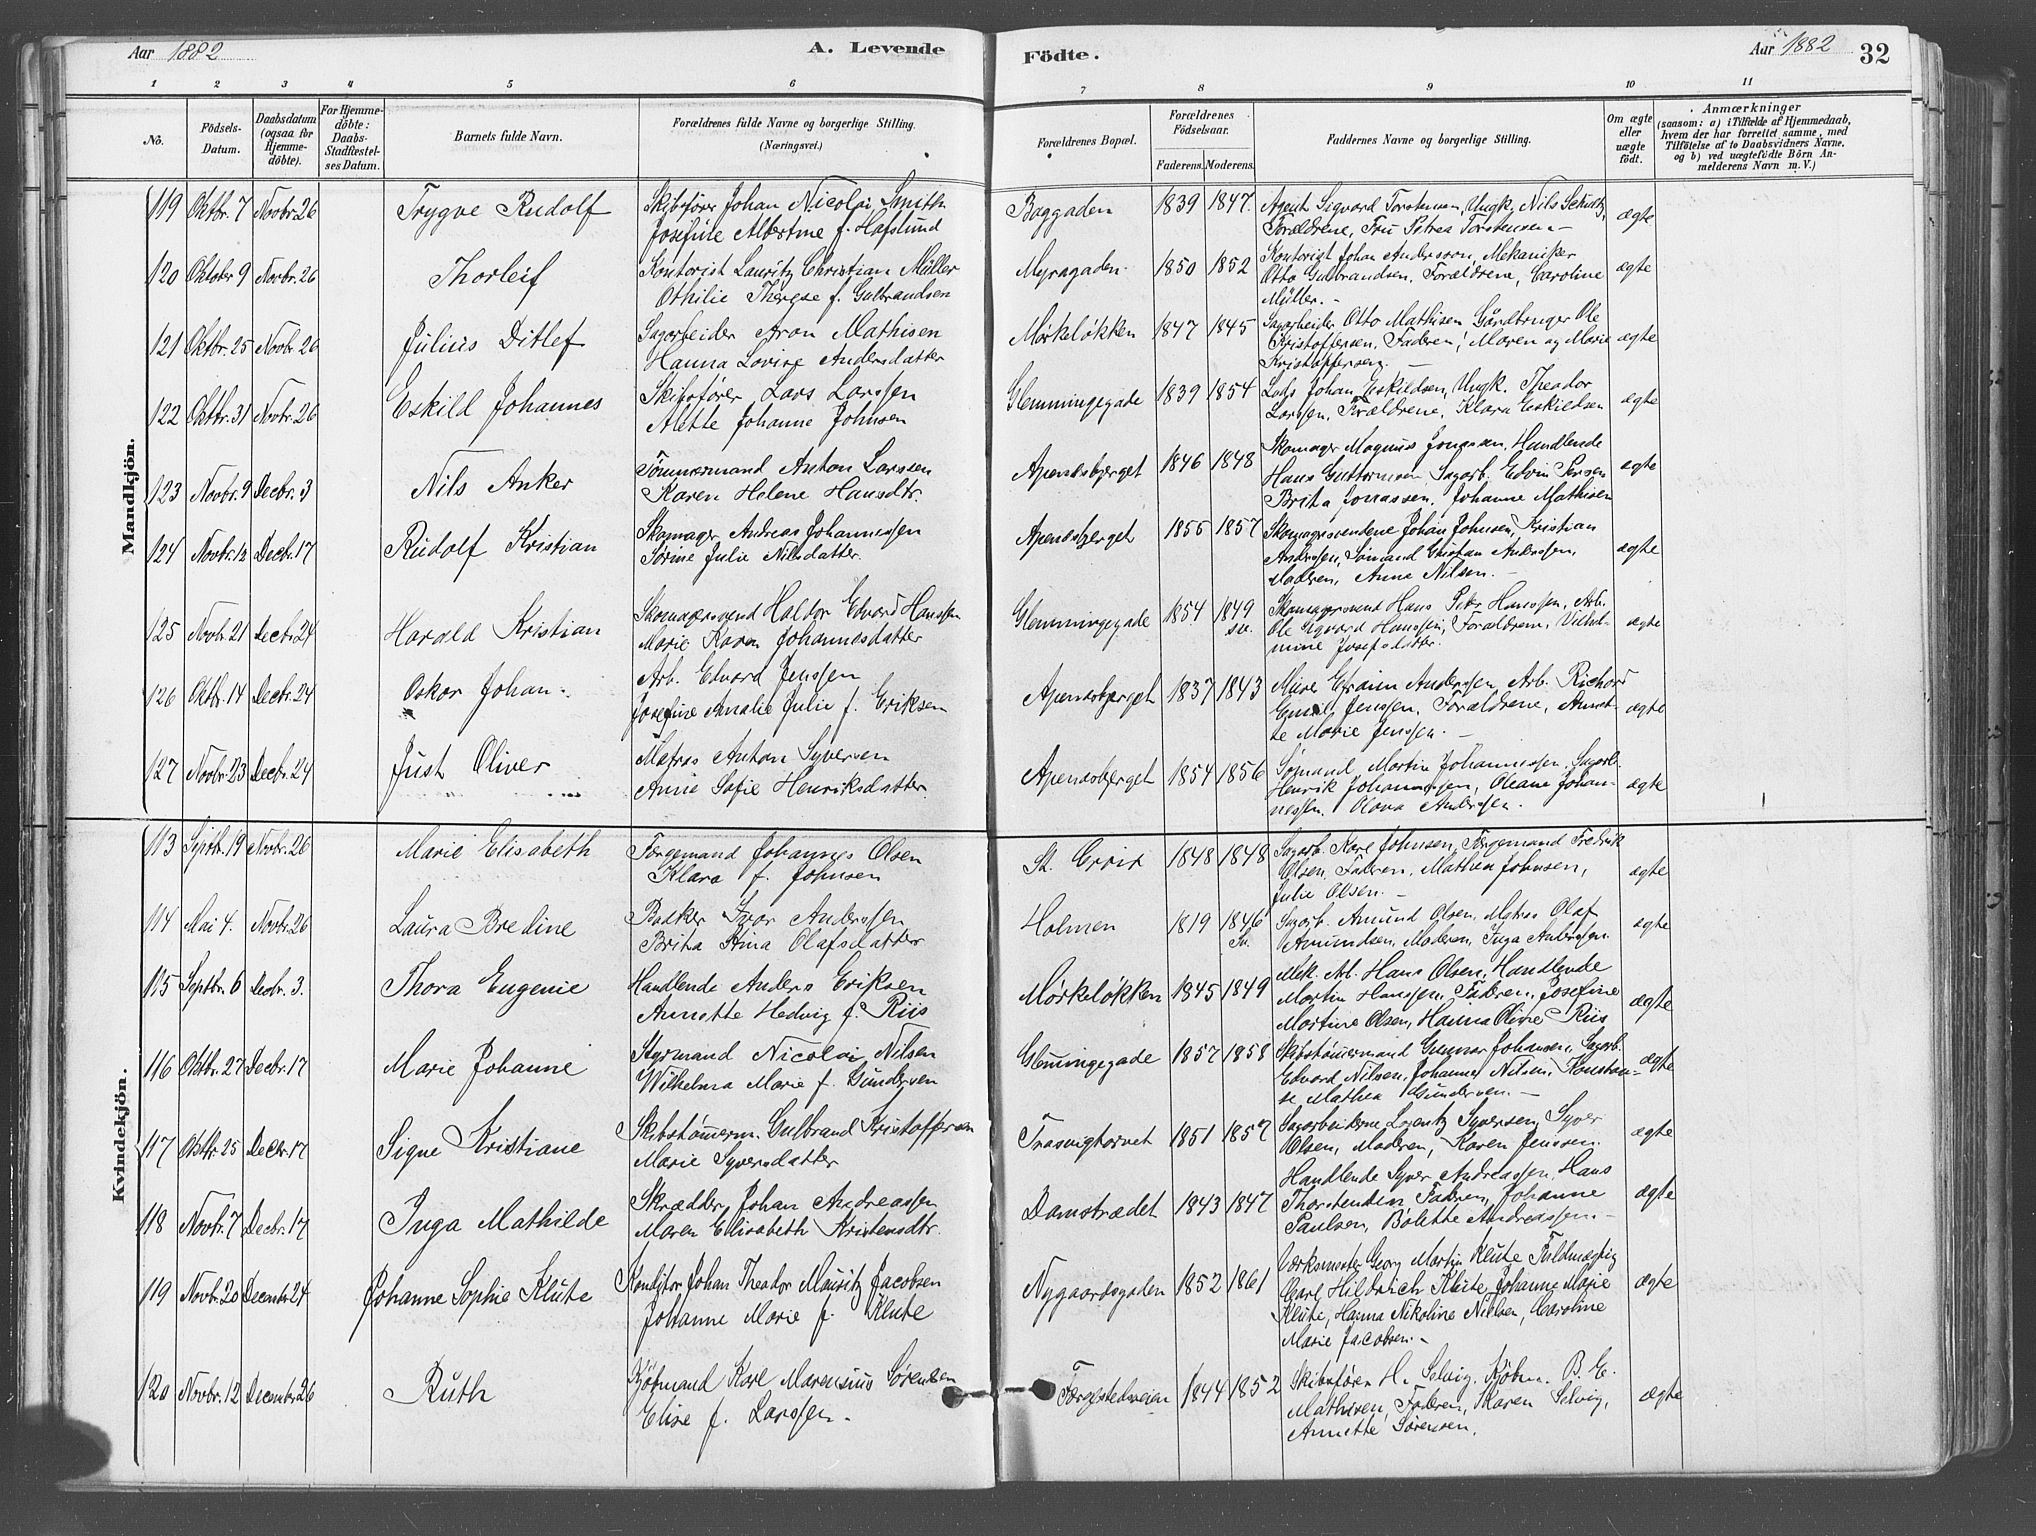 Aar 1882
A. Levende
Födte.
Aar 1882
32
1 2 3 4 5 6 7 8 9 10 11
No.
Födsels-
Datum.
Daabsdatum
(ogsaa for
Hjemme-
döbte).
For Hjemme-
döbte:
Daabs-
Stadfæstel-
ses Datum.
Barnets fulde Navn.
Forældrenes fulde Navne og borgerlige Stilling.
(Næringsvei.)
Forældrenes Bopæl.
Forældrenes
Födselsaar.
Faderens. Moderens.
Faddernes Navne og borgerlige Stilling.
Om ægte
eller
uægte
födt.
Anmærkninger
(saasom: a) i Tilfælde af Hjemmedaab,
hvem der har forrettet samme, med
Tilföielse af to Daabsvidners Navne,
og b) ved uægtefödte Börn An-
melderens Navn m. V.)
Mandkjön.
119 Oktbr. 7 Novbr. 26 Trygve Rudolf
Skibsfører Johan Nicolai Smith
Josefine Albertine f. Hafslund
Baggaden 1839 1847.
Agent Sigvard Torstensen, Ungk. Nils Schultz,
Forældrene, Fru Petrea Torstensen.—
ægte
120 Oktober 9 Novbr. 26 Thorleif
Kontorist Lauritz Christian Müller
Othilie Therese f. Gulbrandsen
Myragaden. 1850 1852
Kontorist Johan Andersson, Mekaniker
Otto Gulbrandsen, Forældrene, Caroline
Müller.—
ægte
121 Oktbr. 25 Novbr 26 Julius Ditlef
Sagarbeider Aron Mathisen
Hanna Lovise Andersdatter
Mørkeløkken 1847 1845
Sagarbeider Otto Mathisen, Gårdbruger Ole
Kristoffersen, Faderen, Maren og Marie
Kristoffersen.—
ægte
122 Oktbr. 31 Novbr. 26 Eskild Johannes
Skibsfører Lars Larssen
Alette Johanne Johnsen
Glemmingegade 1839 1854
Lods Johan Eskildsen, Ungk. Theodor
Larssen, Forældrene, Klara Eskildsen
ægte
123 Novbr. 9 Decbr. 3 Nils Anker
Tømmermand Anton Larssen
Karen Helene Hansdtr.
Apenæsbjerget 1846 1848
Skomager Magnus Jonassen, Handlende
Hans Guttormsen, Sagarb. Edvin Jensen
Brita Jonassen, Johanne Mathisen
ægte
124 Novbr. 12 Decbr. 17 Rudolf Kristian
Skomager Andreas Johannessen
Sørine Julie Nilsdatter
Apenæsbjerget 1856 1857
Skomagersvendene Johan Johnsen, Kristian
Anderssen, Sömand Anderssen,
Moderen, Anna Nilsen.—
ægte
125 Novbr. 21 Decbr 24 Harald Kristian
Skomagersvend Haldor Edvard Hanssen
Marie Karen Johannesdatter
Glemmingegade 1854 1849
sv.
Skomagersvend Hans Petr. Hanssen, Arb.
Ole Sigvard Hanssen, Forældrene, Vilhel-
mine Josefsdatter.
ægte
126 Oktbr. 14 Decbr. 24 Oskar Johan.
Arb. Edvard Jenssen
Josefine Amalie Julie f. Eriksen
Apenæsbjerget 1837 1843
Murer Efraim Anderssen, Arb. Richard
Emil Jenssen, Forældrene, Annet-
te Marie Jenssen.—
ægte
127 Novbr. 23 Decbr. 24 Just Oliver
Matros Anton Syversen
Anne Sofie Henriksdatter
Apenæsbjerget 1854 1856
Sømand Martin Johannessen, Sagarb.
Henrik Johannessen, Oleane Johan-
nessen, Olava Anderssen.
ægte
Kvindekjön.
113 Septbr. 19 Novbr. 26 Marie Elisabeth
Færgemand Johannes Olsen
Klara f. Johnsen
St. Croix 1848 1848
Sagarb. Karl Johnsen, Færgemand Fredrik
Olsen, Faderen, Mathea Johnsen,
Julie Olsen.—
ægte
114 Mai 4. Novbr. 26 Laura Bredine
Bødker Ivar Anderssen
Brita Stina Olafsdatter
Holmen 1819 1846
Sv.
Sagarb. Amund Olsen, Matros Olaf
Amundsen, Moderen, Inga Anderssen.
ægte
115 Septbr. 6 Decbr. 3. Thora Eugenie
Handlende Anders Eriksen
Annette Hedvig f. Riis
Mørkeløkken 1845 1849
Mek. Arb. Hans Olsen, Handlende
Martin Hanssen, Faderen, Josefine
Martine Olsen, Hanna Oline Riis
ægte
116 Oktbr. 27 Decbr. 17 Marie Johanne
Styrmand Nicolai Nilsen
Wilhelma Marie f. Gundersen
Glemmingegade 1857 1858
Skibstømmermand Gunnar Johansen, Sagarb.
Edvard Nilsen, Johanne Nilsen, Konstan-
se Mathea Gundersen.—
ægte
117 Oktbr 25 Decbr. 17 Signe Kristiane
Skibstømmerm. Gulbrand Kristoffersen
Marie Syversdatter
Trasvigtorvet 1851 1857
Sagarbeiderne Lorentz Syversen, Syver
Olsen, Moderen, Karen Jenssen.
ægte
118 Novbr. 7 Decbr. 17 Inga Mathilde
Skrædder Johan Andreassen
Maren Elisabeth Kristensdtr.
Damstrædet 1843 1847
Handlende Syver Andreassen, Hans
Thorstensen, Faderen, Johanne
Paulsen, Bolette Andreassen.—
ægte
119 Novbr. 20 Decembr 24 Johanne Sophie Klute
Konditor Johan Theodor Mauritz Jacobsen
Johanne Marie f. Klute
Nygaardsgaden 1852 1861
Værksmester Georg Martin Klute, Fuldmægtig
Carl Hildrich Klute, Johanne Marie
Klute, Hanna Nikoline Nielsen, Caroline
Marie Jacobsen.—
ægte
120 Novbr. 12 December 26 Ruth
Kjöbmand Karl Marensius Sörensen
Elise f. Larssen.
Færgestedsveien 1844 1852
Skibsfören H. Selvig, Kjöbm. B. E.
Mathisen, Faderen, Maren Selvig,
Annette Sörensen.
ægte